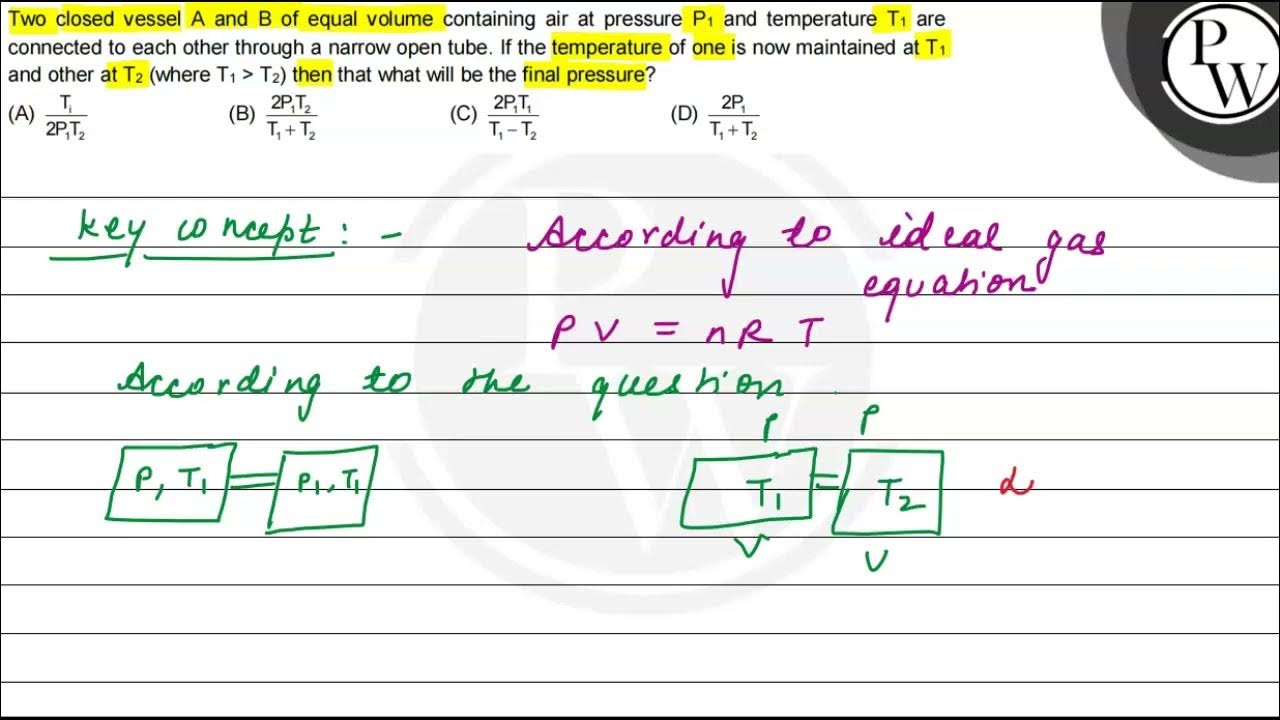 Two closed vessel A and B of equal volume containing air at pressure P₁ and temperature T₁ are
connected to each other through a narrow open tube. If the temperature of one is now maintained at T₁
and other at T₂ (where T₁ > T₂) then that what will be the final pressure?
(A) Tᵢ/2P₁T₂ (B) 2P₁T₂/T₁ + T₂ (C) 2P₁T₁/T₁ – T₂ (D) 2P₁/T₁ + T₂
P
W
key concept : - According to ideal gas
equation
P V = n R T
According to the question
P P
P, T₁ P₁, T₁ T₁ T₂
V V